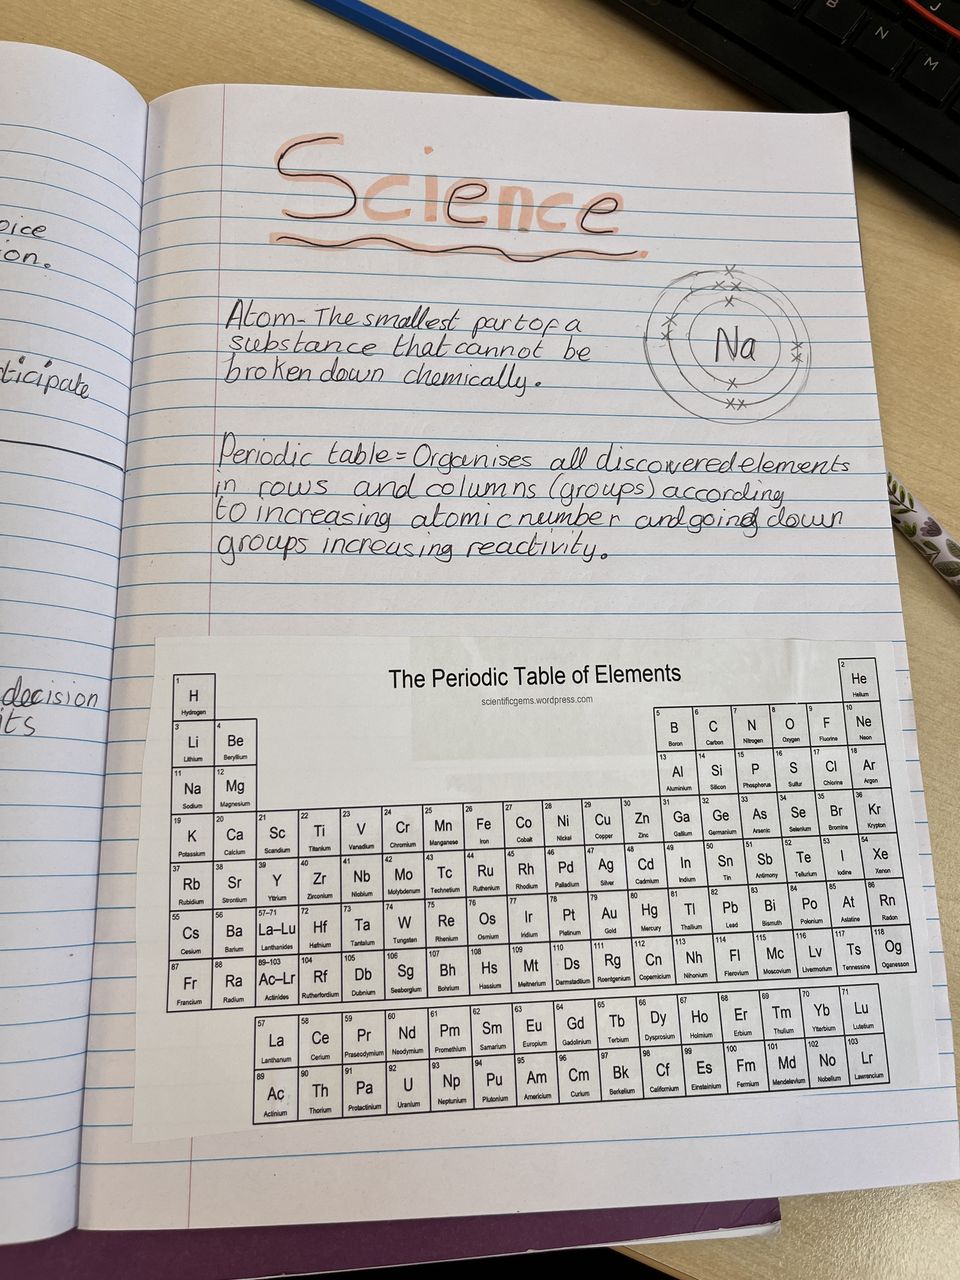 oice
ion.
ticipate
decision
its
Science
Atom - The smallest part of a
substance that cannot be
broken down chemically.
Na
Periodic table = Organises all discovered elements
in rows and columns (groups) according
to increasing atomic number and going down
groups increasing reactivity.
The Periodic Table of Elements
scientificgems.wordpress.com
1 H Hydrogen 2 He Helium
3 Li Lithium 4 Be Beryllium 5 B Boron 6 C Carbon 7 N Nitrogen 8 O Oxygen 9 F Fluorine 10 Ne Neon
11 Na Sodium 12 Mg Magnesium 13 Al Aluminium 14 Si Silicon 15 P Phosphorus 16 S Sulfur 17 Cl Chlorine 18 Ar Argon
19 K Potassium 20 Ca Calcium 21 Sc Scandium 22 Ti Titanium 23 V Vanadium 24 Cr Chromium 25 Mn Manganese 26 Fe Iron 27 Co Cobalt 28 Ni Nickel 29 Cu Copper 30 Zn Zinc 31 Ga Gallium 32 Ge Germanium 33 As Arsenic 34 Se Selenium 35 Br Bromine 36 Kr Krypton
37 Rb Rubidium 38 Sr Strontium 39 Y Yttrium 40 Zr Zirconium 41 Nb Niobium 42 Mo Molybdenum 43 Tc Technetium 44 Ru Ruthenium 45 Rh Rhodium 46 Pd Palladium 47 Ag Silver 48 Cd Cadmium 49 In Indium 50 Sn Tin 51 Sb Antimony 52 Te Tellurium 53 I Iodine 54 Xe Xenon
55 Cs Cesium 56 Ba Barium 57–71 La–Lu Lanthanides 72 Hf Hafnium 73 Ta Tantalum 74 W Tungsten 75 Re Rhenium 76 Os Osmium 77 Ir Iridium 78 Pt Platinum 79 Au Gold 80 Hg Mercury 81 Tl Thallium 82 Pb Lead 83 Bi Bismuth 84 Po Polonium 85 At Astatine 86 Rn Radon
87 Fr Francium 88 Ra Radium 89–103 Ac–Lr Actinides 104 Rf Rutherfordium 105 Db Dubnium 106 Sg Seaborgium 107 Bh Bohrium 108 Hs Hassium 109 Mt Meitnerium 110 Ds Darmstadtium 111 Rg Roentgenium 112 Cn Copernicium 113 Nh Nihonium 114 Fl Flerovium 115 Mc Moscovium 116 Lv Livermorium 117 Ts Tennessine 118 Og Oganesson
57 La Lanthanum 58 Ce Cerium 59 Pr Praseodymium 60 Nd Neodymium 61 Pm Promethium 62 Sm Samarium 63 Eu Europium 64 Gd Gadolinium 65 Tb Terbium 66 Dy Dysprosium 67 Ho Holmium 68 Er Erbium 69 Tm Thulium 70 Yb Ytterbium 71 Lu Lutetium
89 Ac Actinium 90 Th Thorium 91 Pa Protactinium 92 U Uranium 93 Np Neptunium 94 Pu Plutonium 95 Am Americium 96 Cm Curium 97 Bk Berkelium 98 Cf Californium 99 Es Einsteinium 100 Fm Fermium 101 Md Mendelevium 102 No Nobelium 103 Lr Lawrencium
B
J
N
M